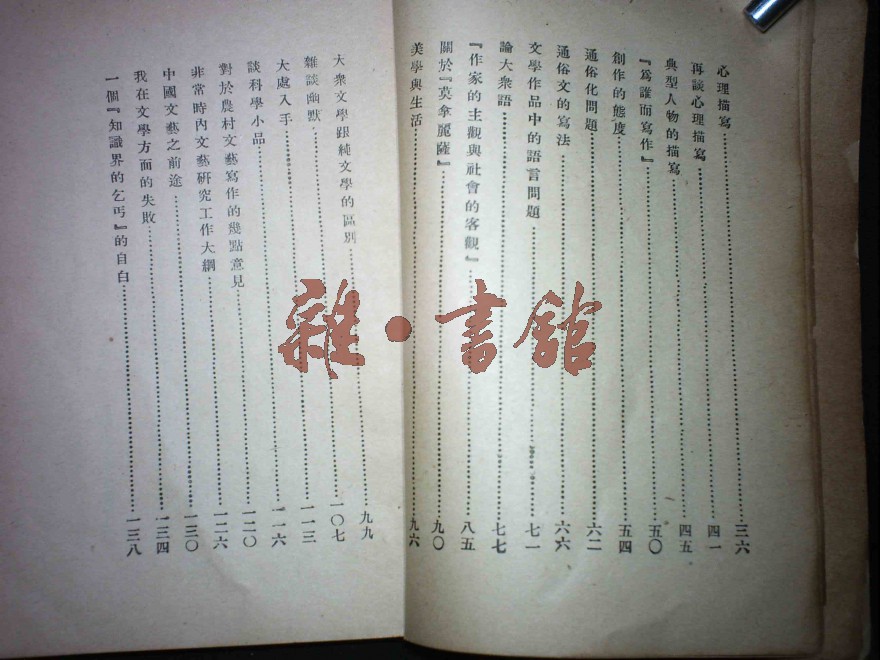 心理描寫……三六
再談心理描寫……四一
典型人物的描寫……四五
『爲誰而寫作』……五〇
創作的態度……五四
通俗化問題……六二
通俗文的寫法……六六
文學作品中的語言問題……七一
論大衆語……七七
『作家的主觀與社會的客觀』……八五
關於『莫拿麗薩』……九〇
美學與生活……九六
大衆文學跟純文學的區別……九九
雜談幽默……一〇七
大處入手……一一三
談科學小品……一一六
對於農村文藝寫作的幾點意見……一二〇
非常時內文藝研究工作大綱……一二六
中國文藝之前途……一三〇
我在文學方面的失敗……一三四
一個『知識界的乞丐』的自白……一三八
雜·書館